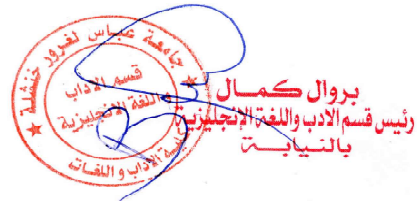 جامعة عباس لغرور خنشلة
قسم الآداب
واللغة الانجليزية
كلية الآداب واللغات
بروال كمال
رئيس قسم الادب واللغة الإنجليزية
بالنيابة